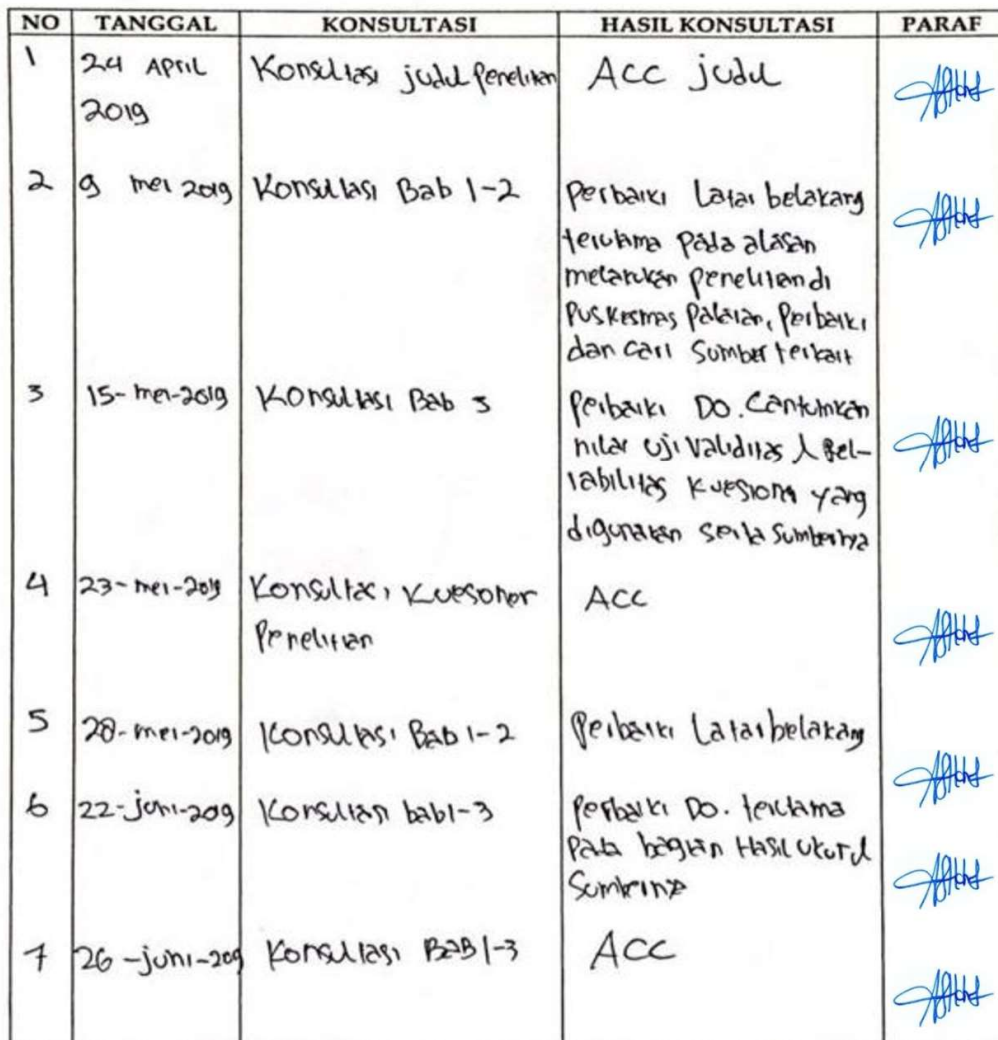 NO TANGGAL KONSULTASI HASIL KONSULTASI PARAF
1 24 April Konsultasi judul Penelitian ACC judul
2019
2 9 mei 2019 Konsultasi Bab 1-2 Perbaiki Latar belakang
terutama pada alasan
melakukan penelitian di
Puskesmas Palaran, Perbaiki
dan cari Sumber terkait
3 15-mei-2019 Konsultasi Bab 3 Perbaiki DO. Cantumkan
nilai uji validitas & Rel-
iabilitas kuesioner yang
digunakan serta Sumbernya
4 23-mei-2019 Konsultasi Kuesoner ACC
Penelitian
5 28-mei-2019 Konsultasi Bab 1-2 Perbaiki Latar belakang
6 22-juni-2019 Konsultasi bab1-3 Perbaiki DO. terutama
Pada bagian Hasil Ukur &
Sumbernya
7 26-juni-209 Konsultasi BAB 1-3 ACC